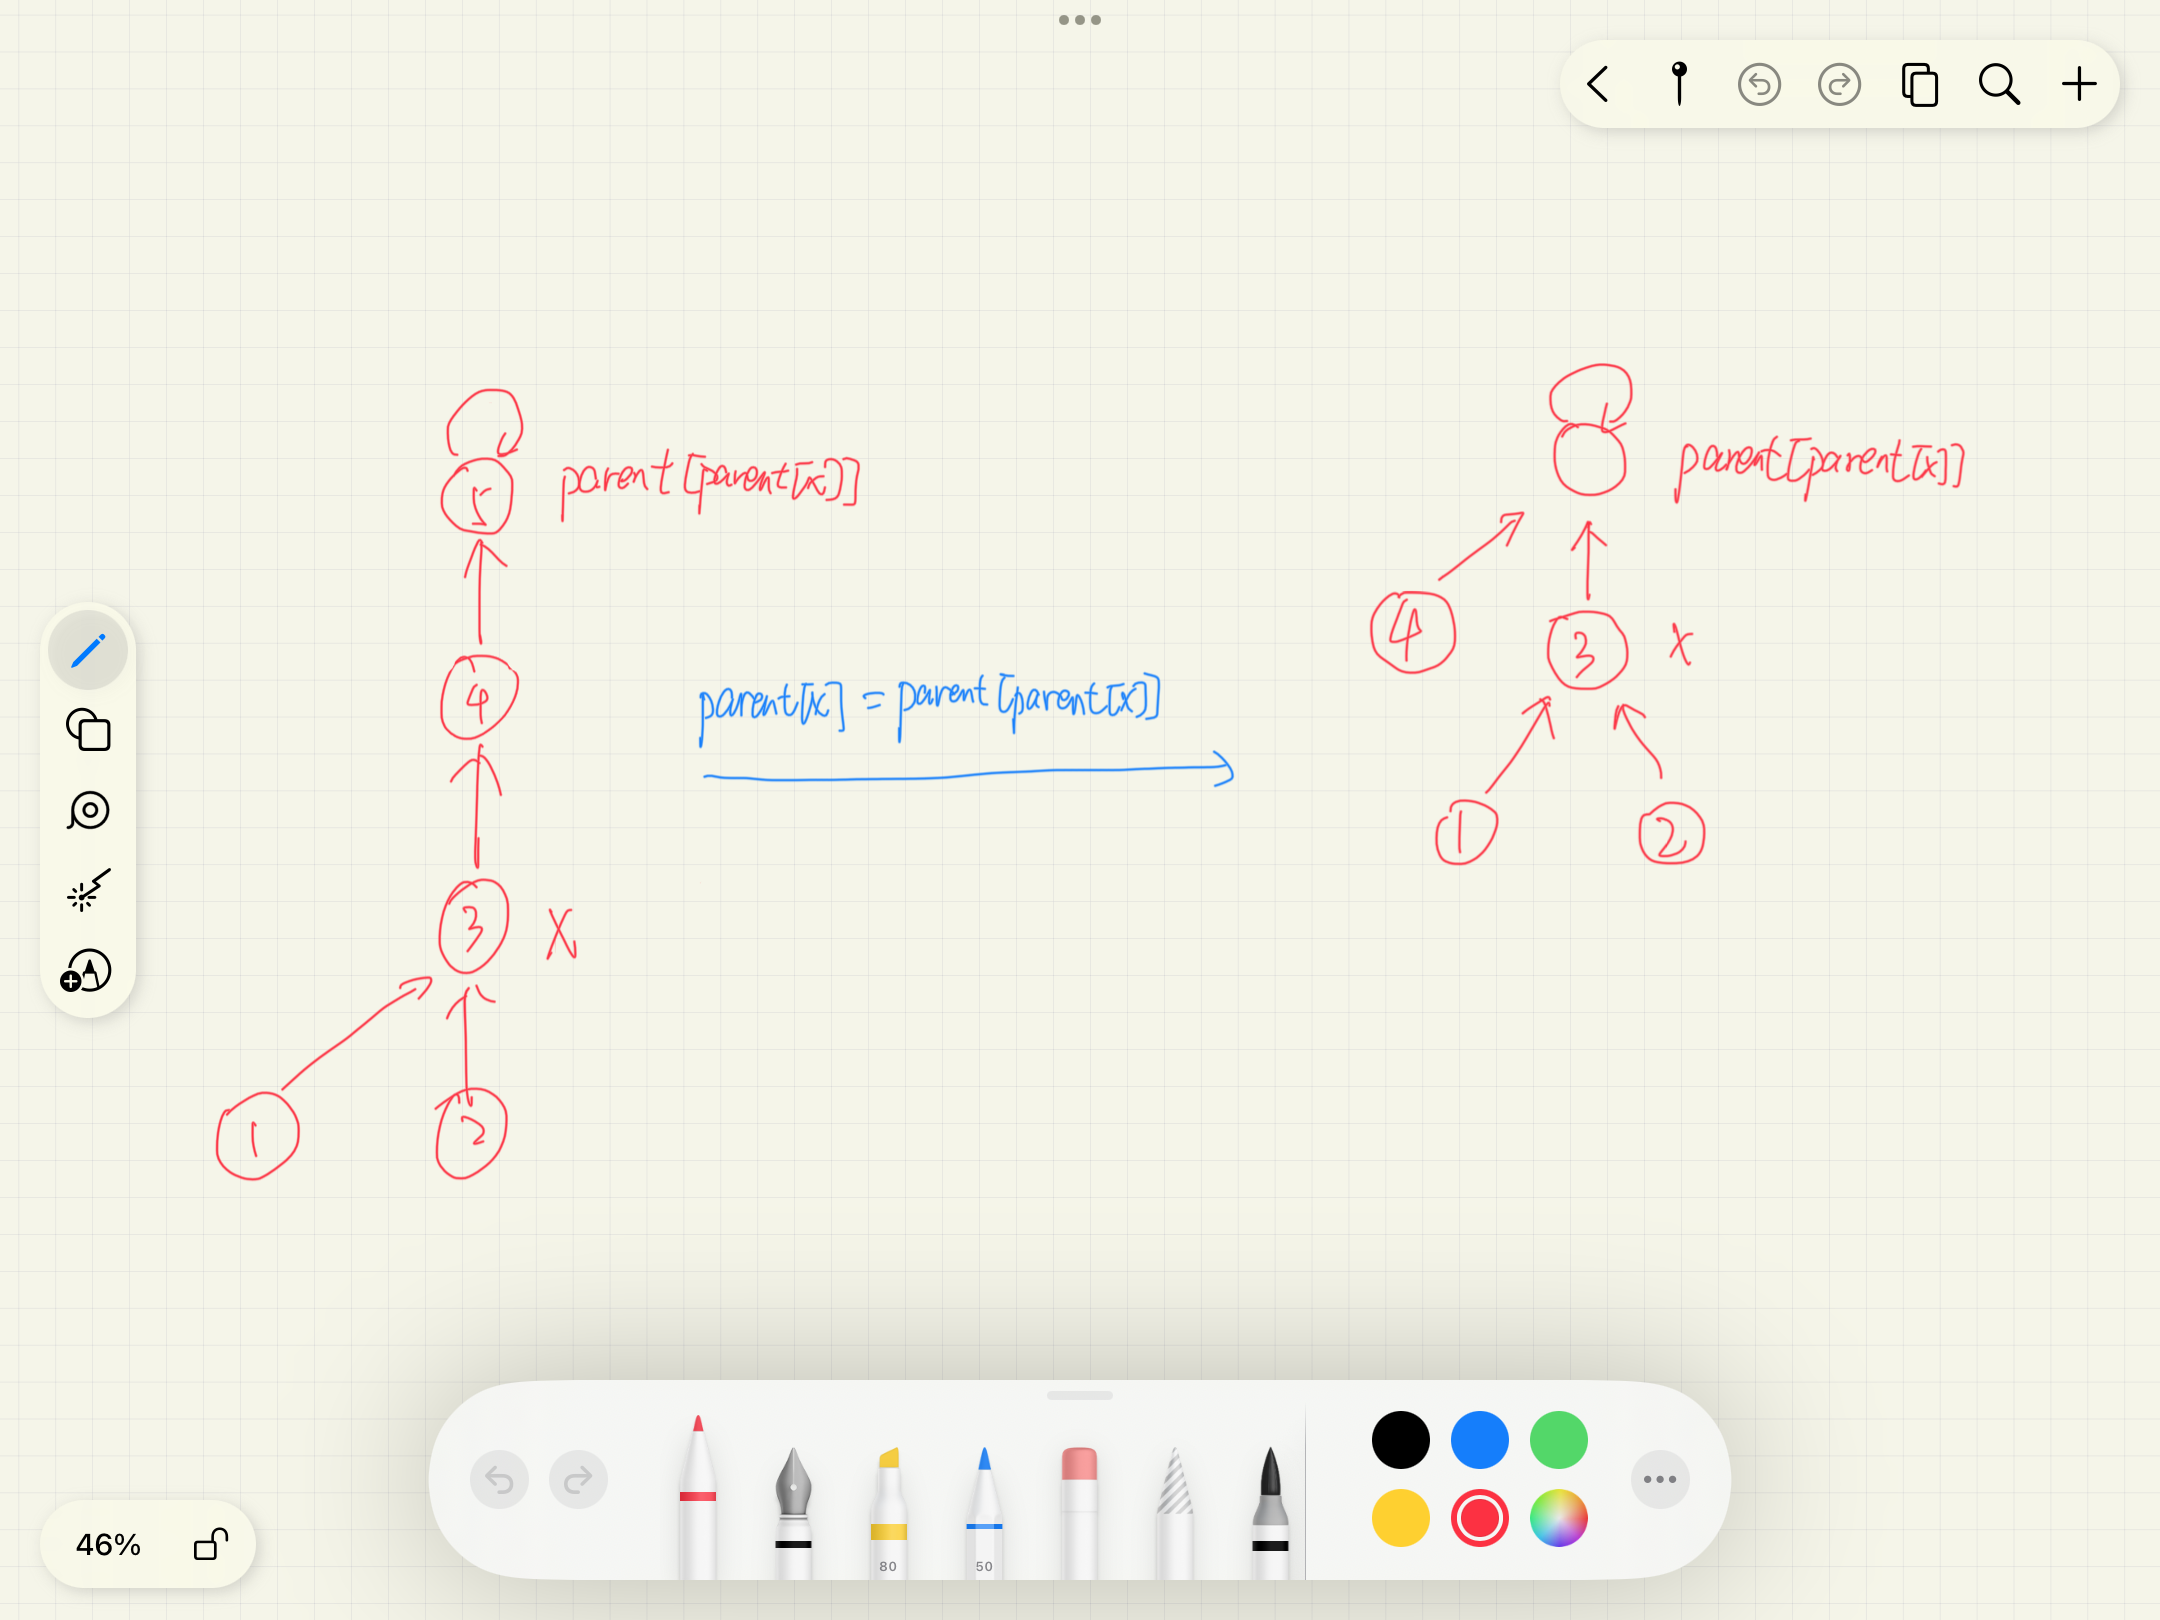 5
parent[parent[x]]
4
3
x
1
2
parent[x] = parent[parent[x]]
parent[parent[x]]
4
3
x
1
2
80
50
46%